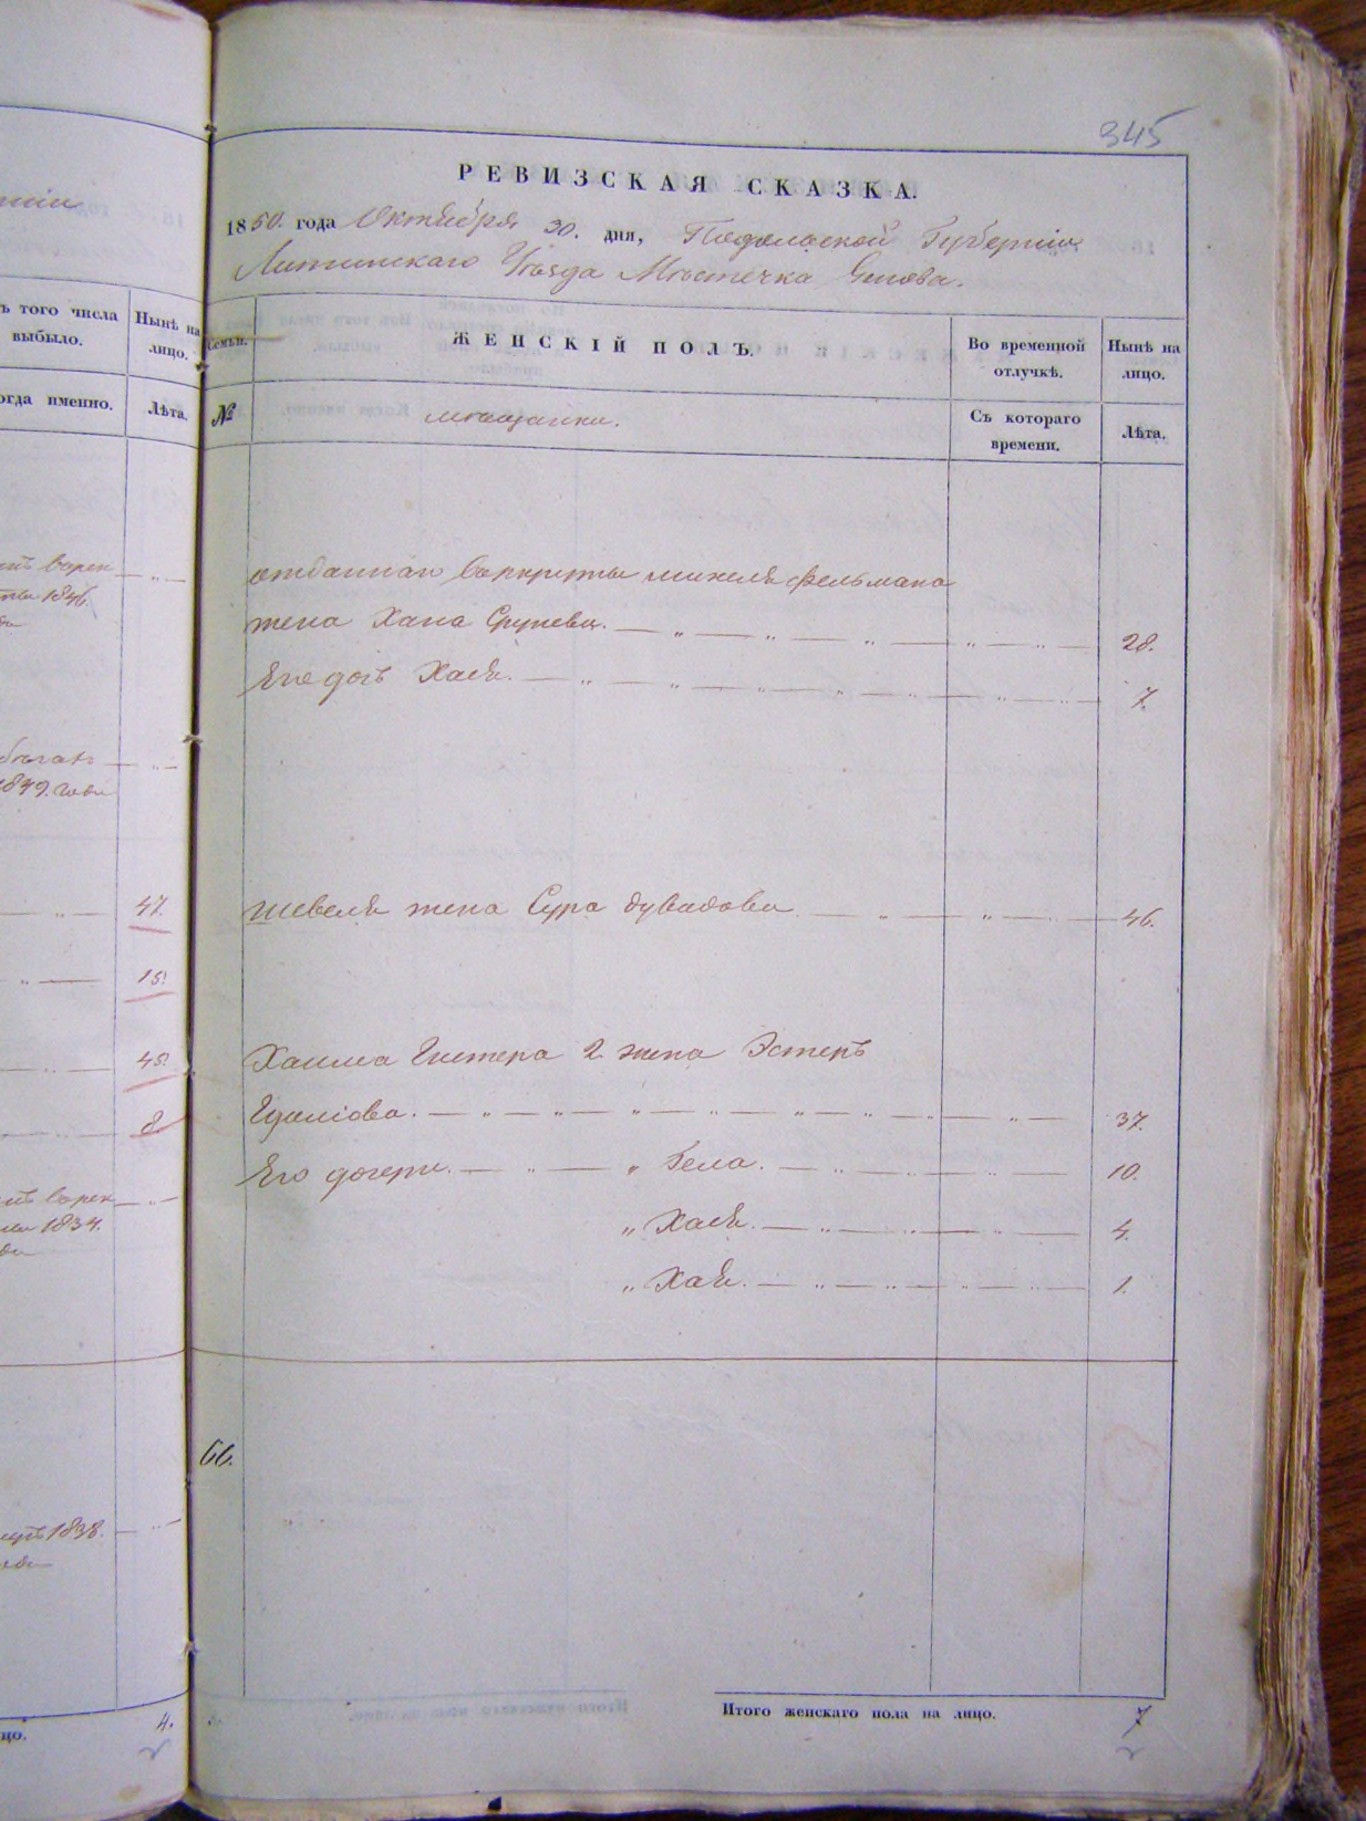 345
РЕВИЗСКАЯ СКАЗКА.
1850. года Октября 30. дня, Подольской Губернии
Литинскаго Уѣзда Мѣстечка
ъ того числа
выбыло.
Нынѣ на
лицо.
огда именно.
Лѣта.
Семьи.
ЖЕНСКІЙ ПОЛЪ.
Во временной
отлучкѣ.
Нынѣ на
лицо.
№
мѣщанки.
Съ котораго
времени.
Лѣта.
1846.
1849. года
47.
15.
45.
8.
1834.
1838.
отданнаго врекруты Михеля Фельмана
жена Хана 28.
Его дочь Хася. 7.
Шевеля жена Сура 46.
Хаима 2 жена Эстеръ
37.
Его дочери. " Бела. 10.
" Хася. 4.
" Хая. 1.
66.
Итого женскаго пола на лицо. 7
цо. 4.